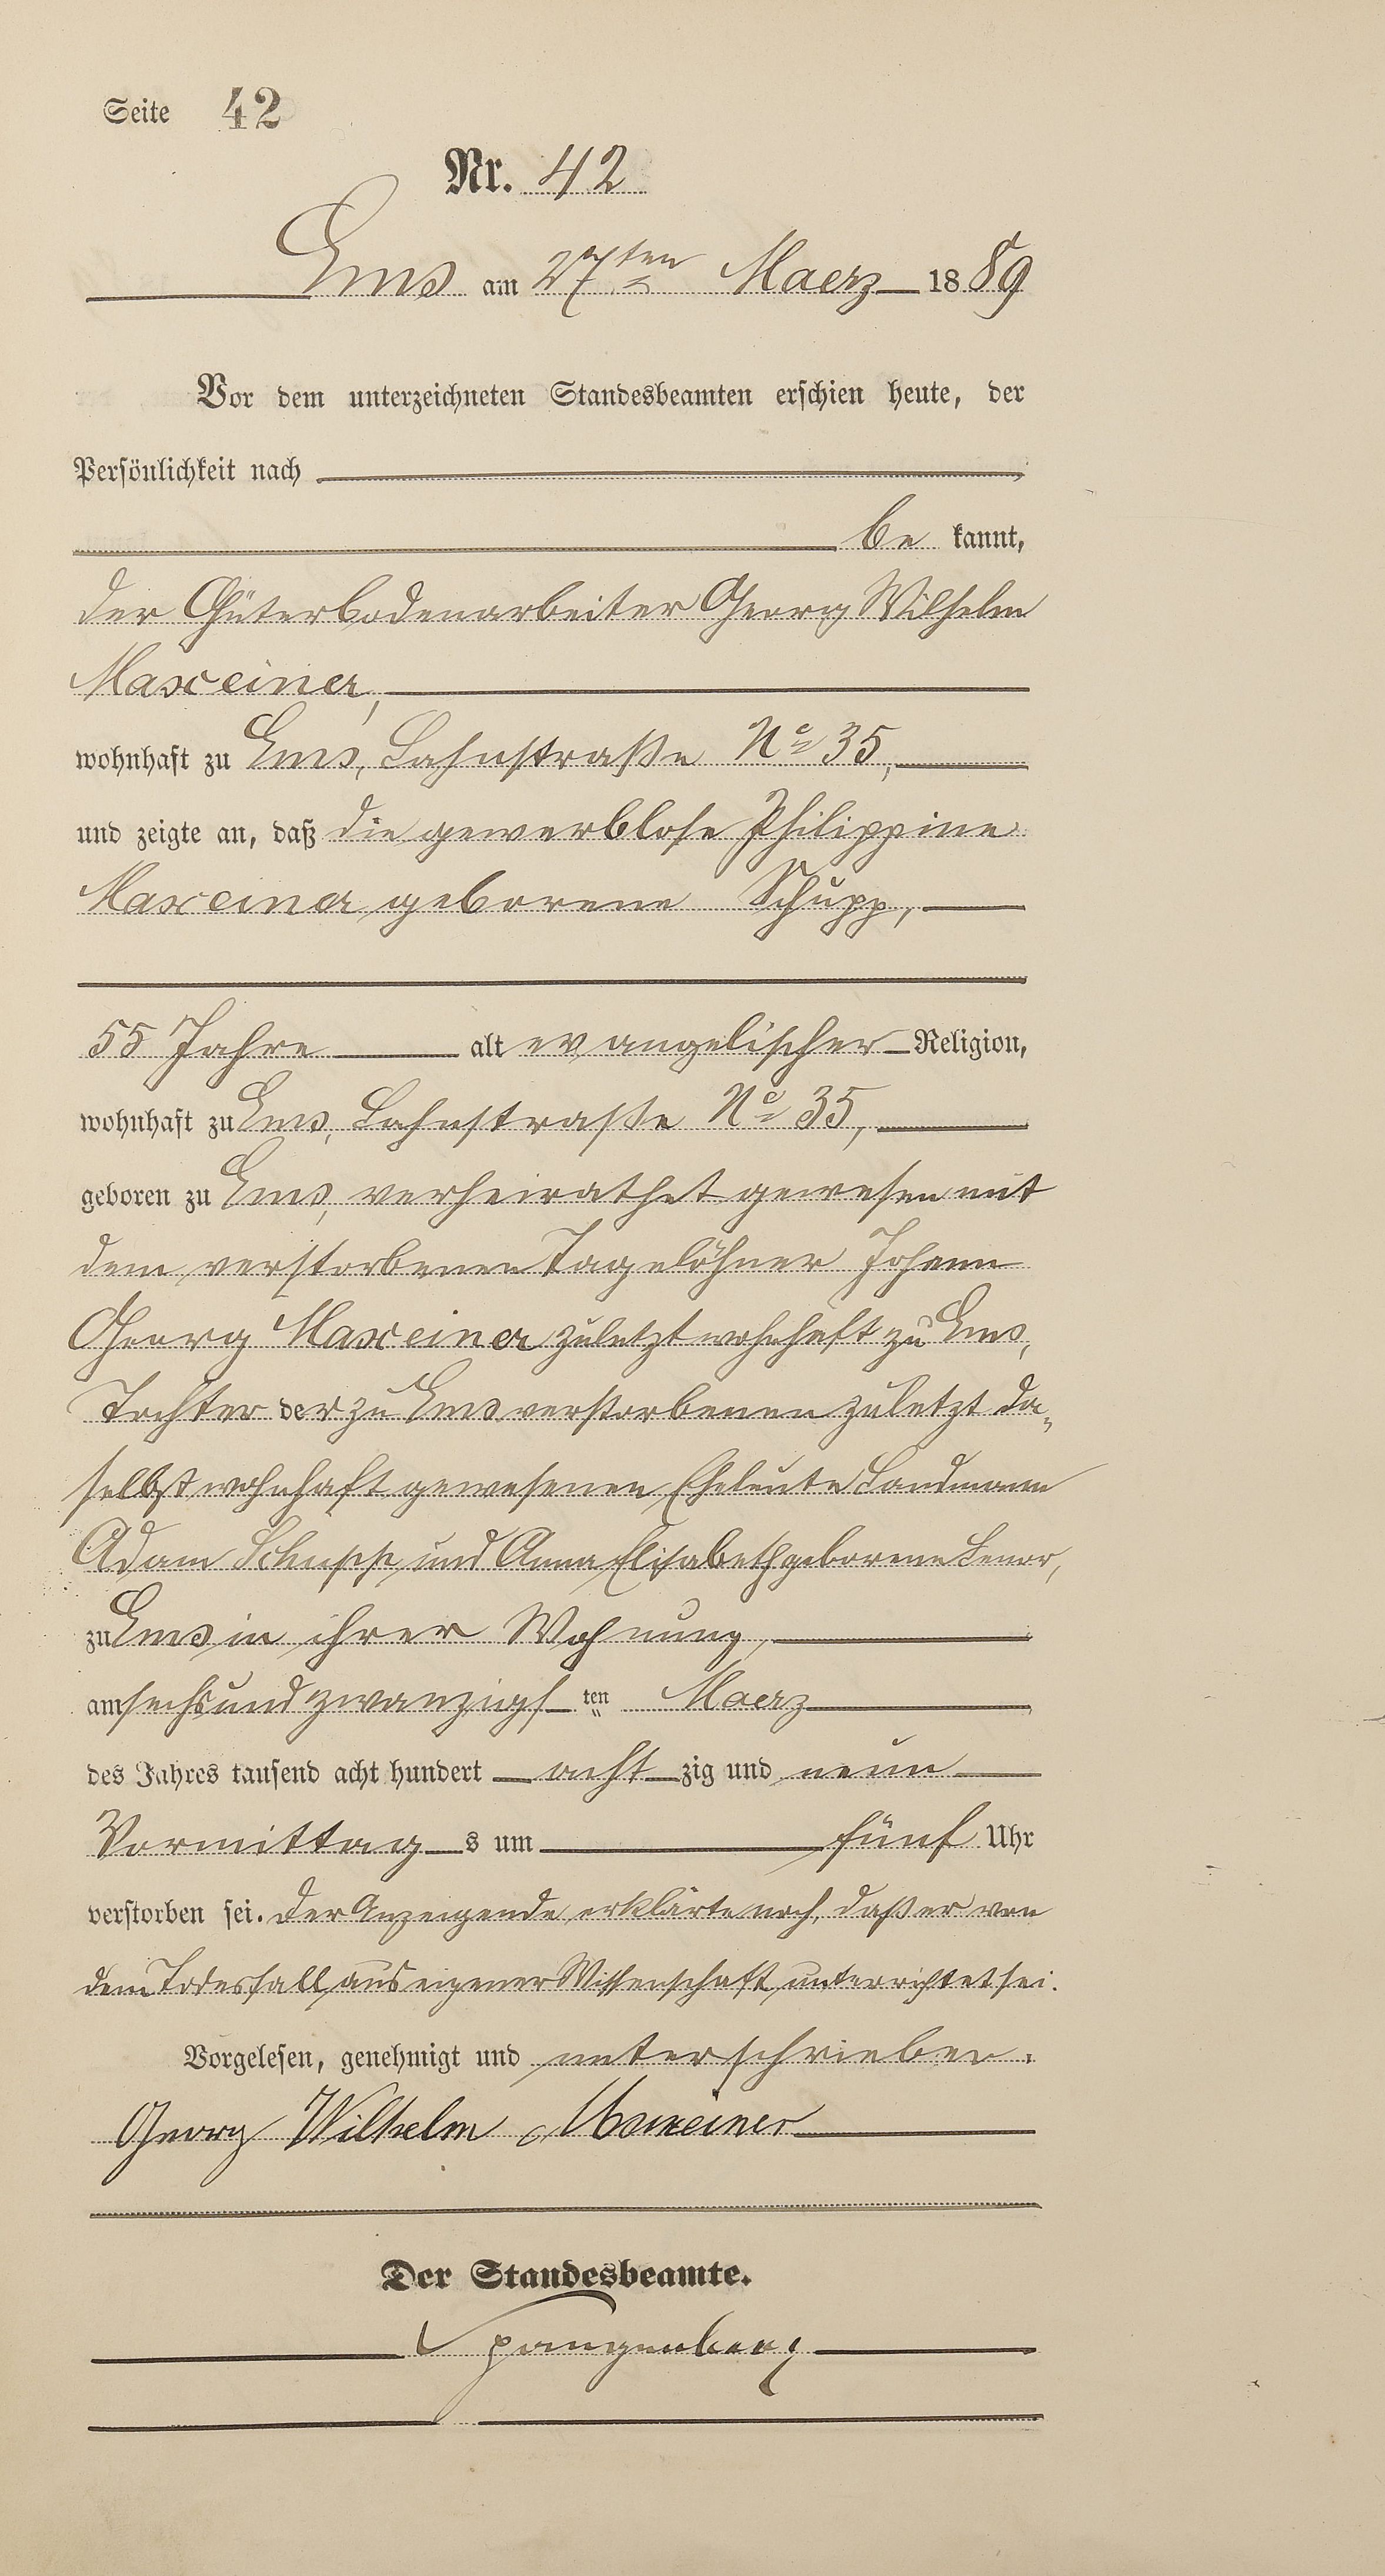 Seite 42
Nr. 42
Ems am 27ten Maerz 1889
Vor dem unterzeichneten Standesbeamten erschien heute, der
Persönlichkeit nach
be kannt,
der Güterbodenarbeiter Georg Wilhelm
Maxeiner,
wohnhaft zu Ems, Lahnstraße No 35,
und zeigte an, daß die gewerblose Philippine
Maxeiner geborene Schupp,
55 Jahre alt evangelischer Religion,
wohnhaft zu Ems, Lahnstraße No 35,
geboren zu Ems, verheirathet gewesen mit
dem verstorbenen Tagelöhner Johann
Georg Maxeiner zuletzt wohnhaft zu Ems,
Tochter der zu Ems verstorbenen zuletzt da„
selbst wohnhaft gewesenen Eheleute Landmann
Adam Schupp und Anna Elisabeth geborene
zu Ems in ihrer Wohnung,
am sechs und zwanzigs ten Maerz
des Jahres tausend acht hundert acht zig und neun
Vormittag s um fünf Uhr
verstorben sei. Der Anzeigende erklärte noch, daß er von
dem Todesfall aus eigener Wissenschaft unterrichtet sei.
Vorgelesen, genehmigt und unterschrieben.
Georg Wilhelm Maxeiner
Der Standesbeamte.
Spangenberg